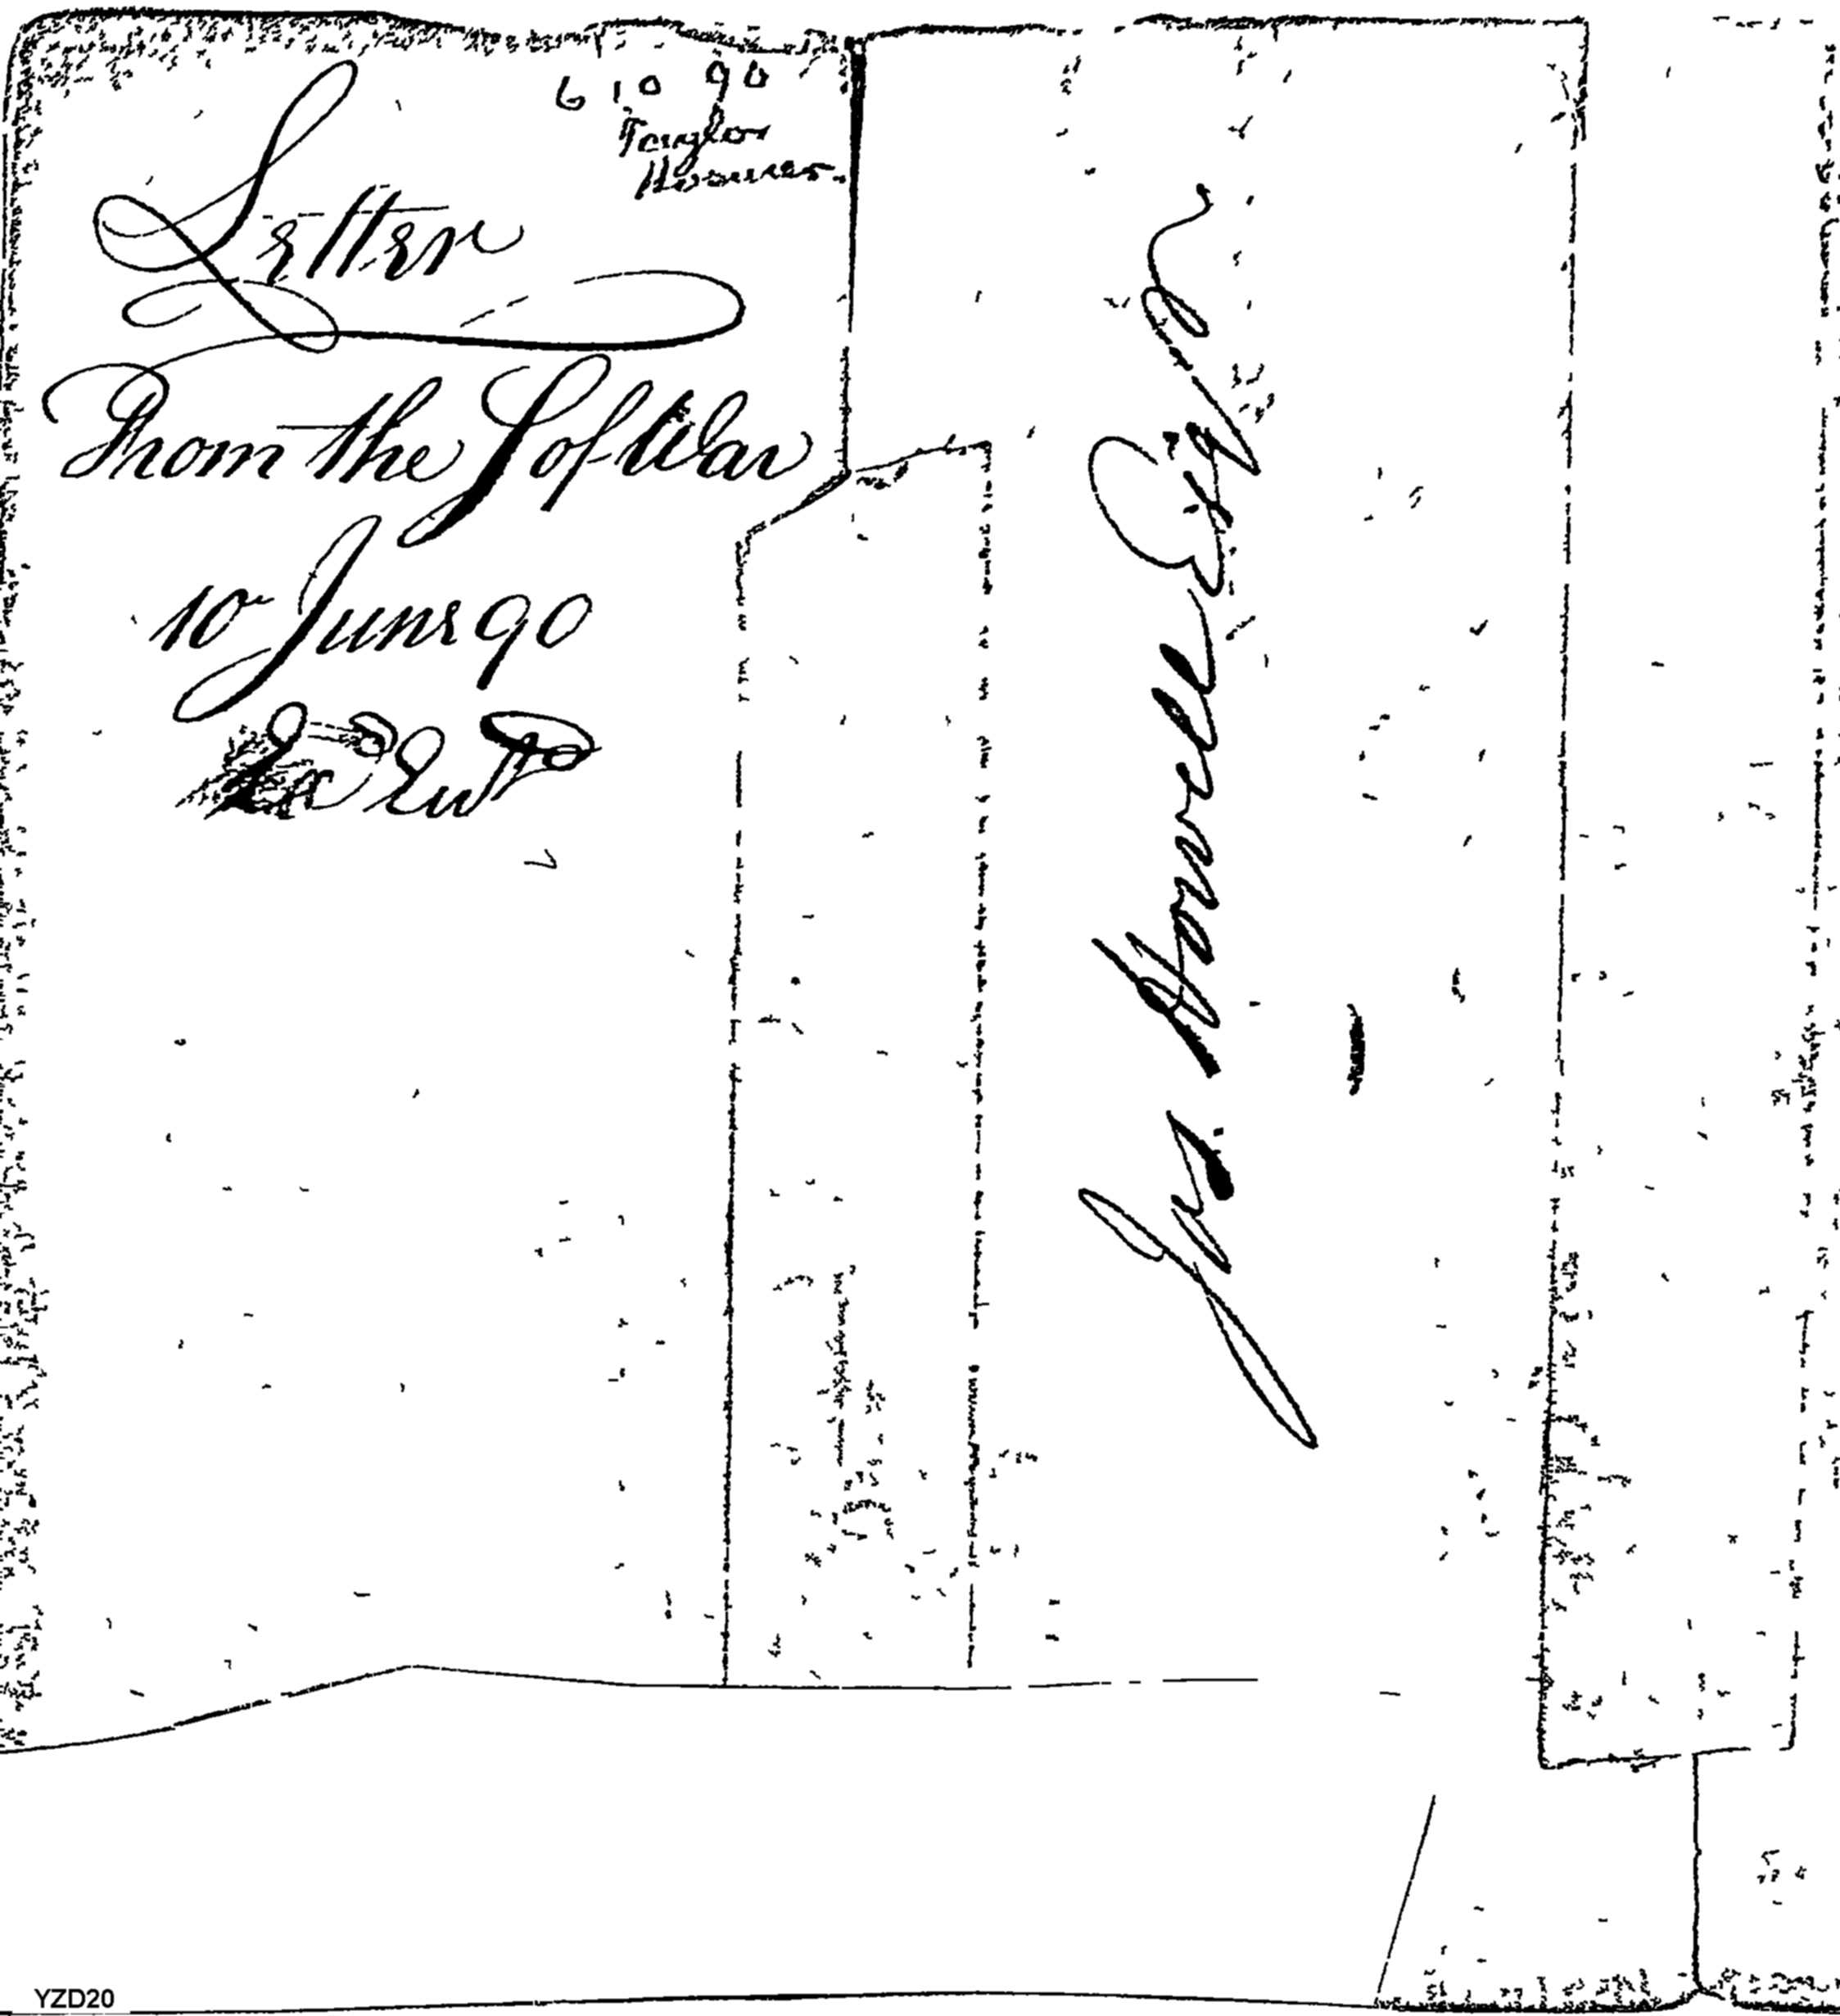 6 10 90
Taylor
Letter
From the S of War
10 June 90
Ex Ent
Jas. Howell Esqr
YZD20